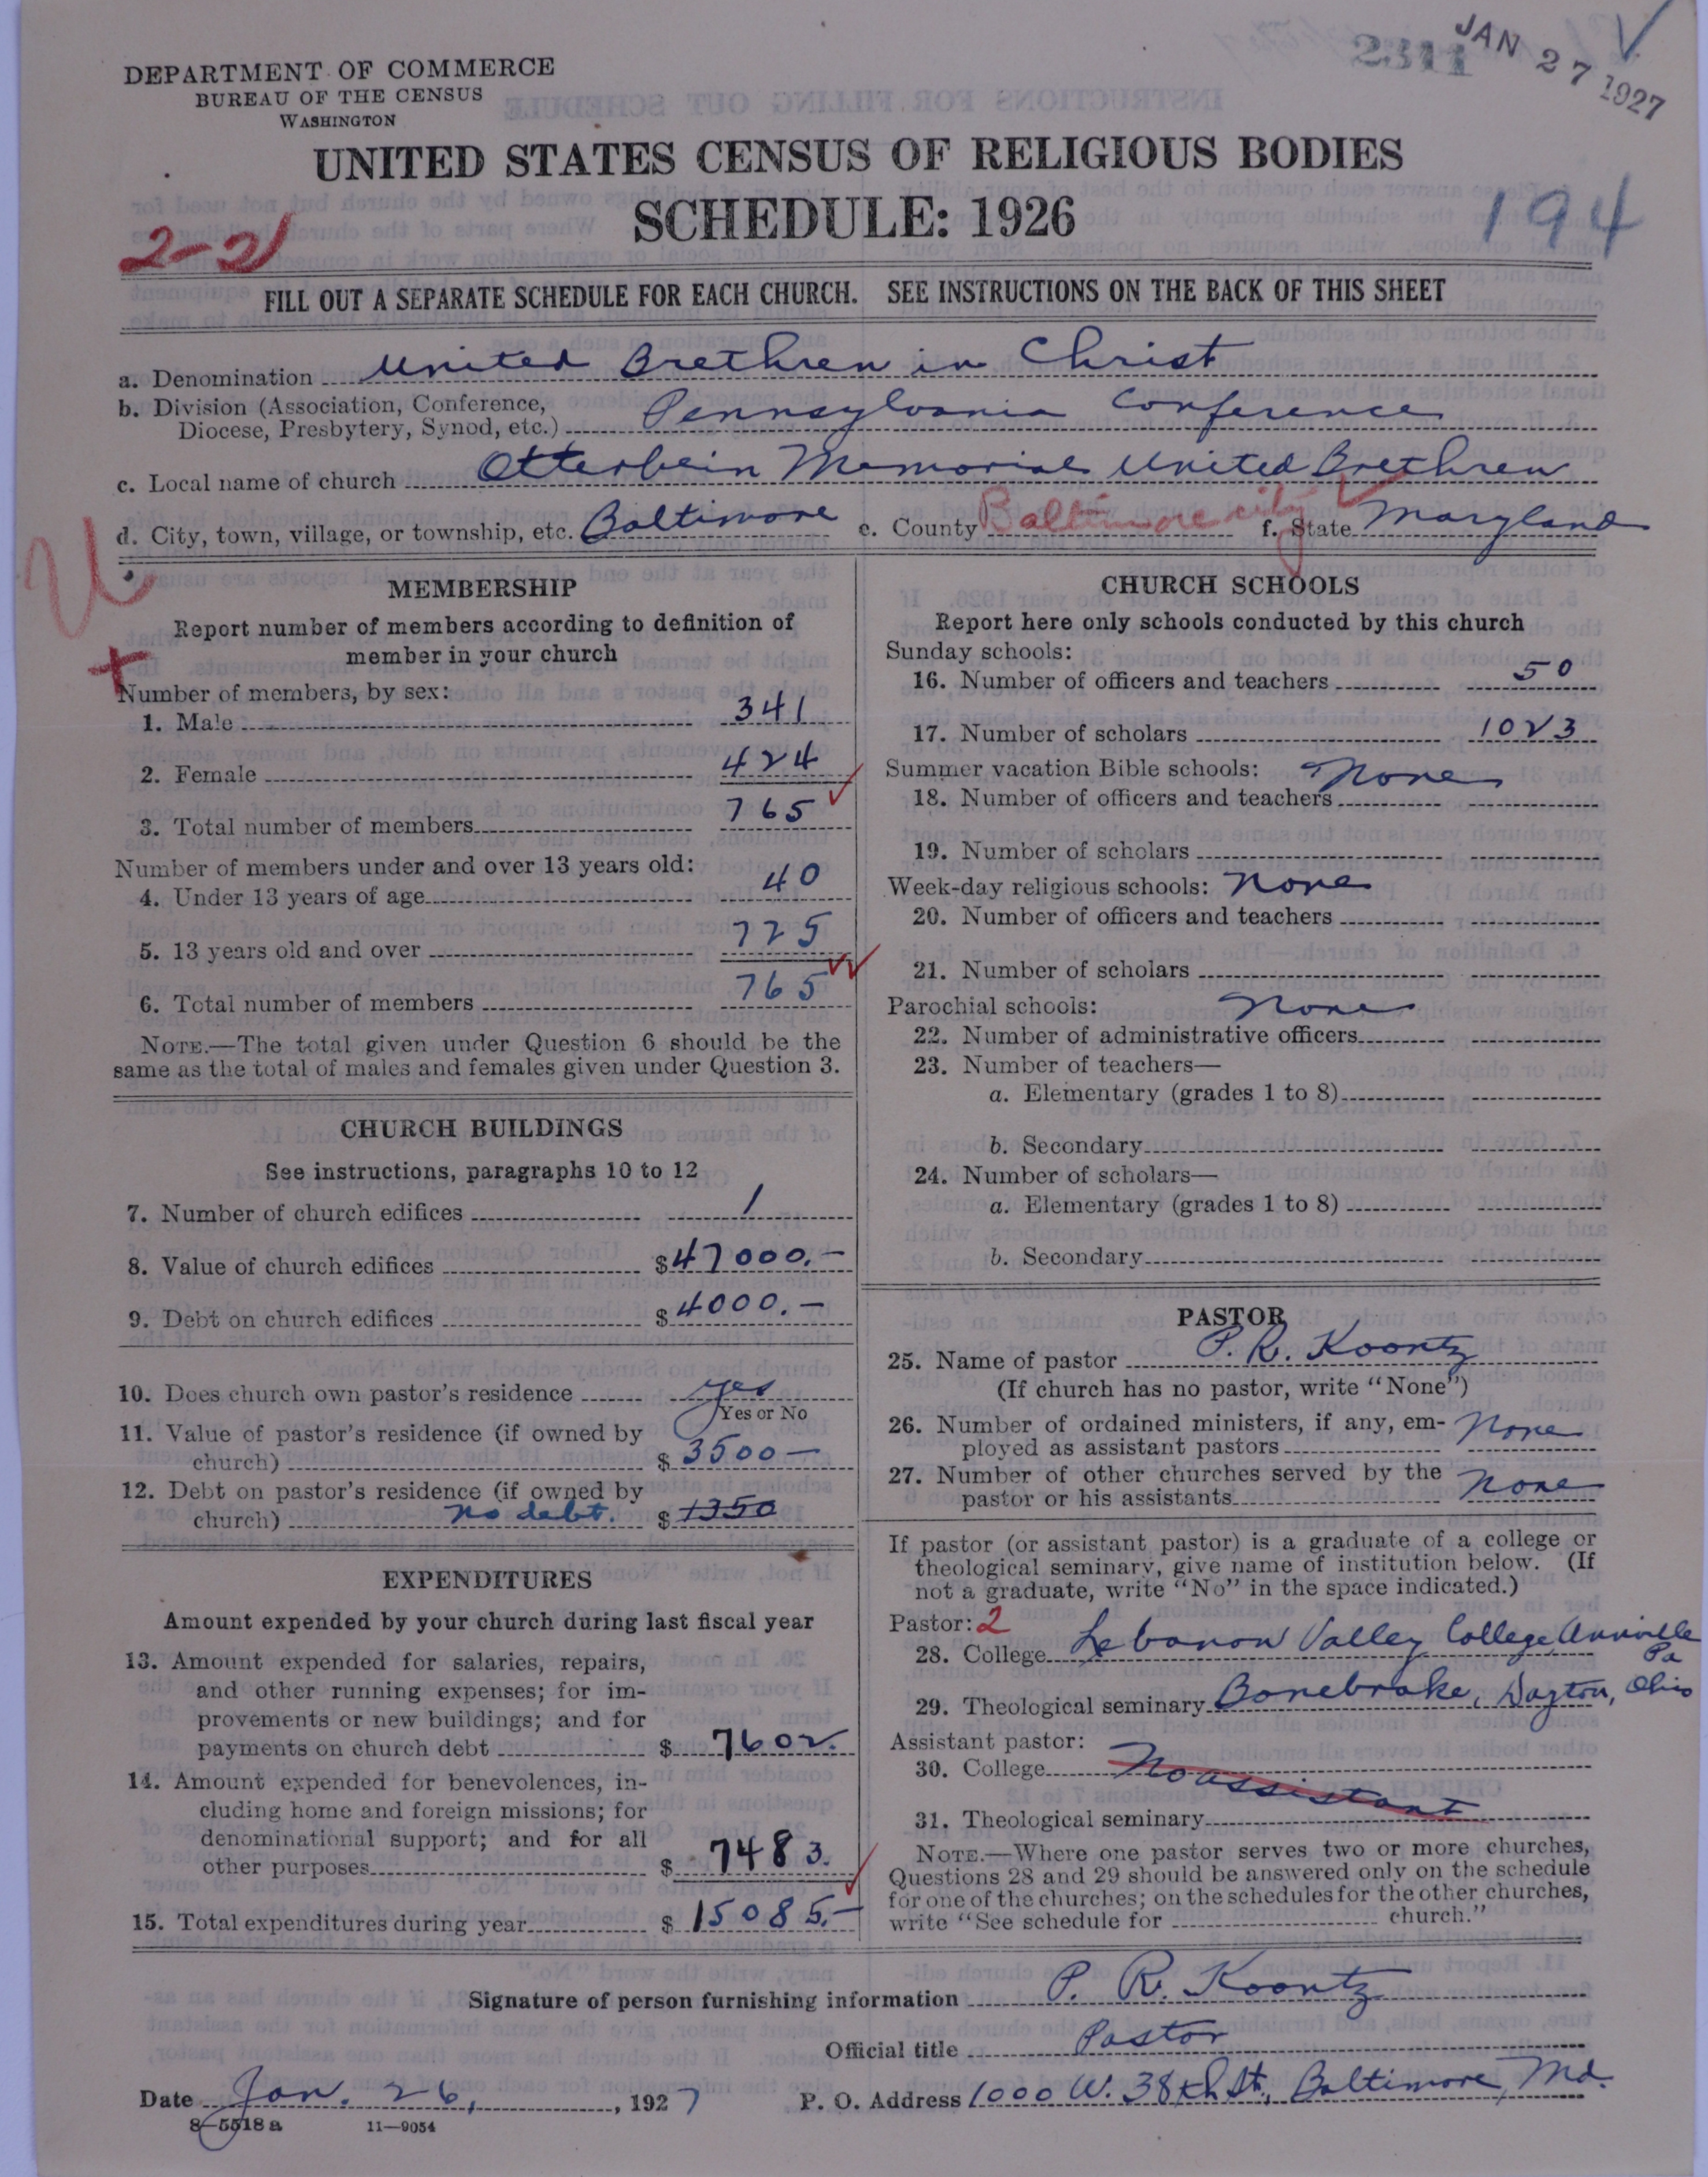 2311
JAN 27 1927
DEPARTMENT OF COMMERCE
BUREAU OF THE CENSUS
WASHINGTON
UNITED STATES CENSUS OF RELIGIOUS BODIES
SCHEDULE: 1926
194
2-21
FILL OUT A SEPARATE SCHEDULE FOR EACH CHURCH. SEE INSTRUCTIONS ON THE BACK OF THIS SHEET
a. Denomination United Brethren in Christ
b. Division (Association, Conference,
Diocese, Presbytery, Synod, etc.) Pennsylvania Conference
c. Local name of church Otterbein Memorial United Brethren
d. City, town, village, or township, etc. Baltimore e. County Baltimore city f. State Maryland
MEMBERSHIP
Report number of members according to definition of
member in your church
Number of members, by sex:
1. Male 341
2. Female 424
3. Total number of members 765
Number of members under and over 13 years old:
4. Under 13 years of age 40
5. 13 years old and over 725
6. Total number of members 765
NOTE.—The total given under Question 6 should be the
same as the total of males and females given under Question 3.
CHURCH BUILDINGS
See instructions, paragraphs 10 to 12
7. Number of church edifices 1
8. Value of church edifices $47000.—
9. Debt on church edifices $4000.—
10. Does church own pastor's residence yes
Yes or No
11. Value of pastor's residence (if owned by
church) $3500—
12. Debt on pastor's residence (if owned by
church) no debt. $1350
EXPENDITURES
Amount expended by your church during last fiscal year
13. Amount expended for salaries, repairs,
and other running expenses; for im-
provements or new buildings; and for
payments on church debt $7602.
14. Amount expended for benevolences, in-
cluding home and foreign missions; for
denominational support; and for all
other purposes $7483.
15. Total expenditures during year $15085.—
CHURCH SCHOOLS
Report here only schools conducted by this church
Sunday schools:
16. Number of officers and teachers 50
17. Number of scholars 1023
Summer vacation Bible schools: None
18. Number of officers and teachers
19. Number of scholars
Week-day religious schools: None
20. Number of officers and teachers
21. Number of scholars
Parochial schools: None
22. Number of administrative officers
23. Number of teachers—
a. Elementary (grades 1 to 8)
b. Secondary
24. Number of scholars—
a. Elementary (grades 1 to 8)
b. Secondary
PASTOR
25. Name of pastor P. R. Koontz
(If church has no pastor, write "None")
26. Number of ordained ministers, if any, em-
ployed as assistant pastors None
27. Number of other churches served by the
pastor or his assistants None
If pastor (or assistant pastor) is a graduate of a college or
theological seminary, give name of institution below. (If
not a graduate, write "No" in the space indicated.)
Pastor: 2
28. College Lebanon Valley College Annville Pa
29. Theological seminary Bonebrake, Dayton, Ohio
Assistant pastor:
30. College No assistant
31. Theological seminary
NOTE.—Where one pastor serves two or more churches,
Questions 28 and 29 should be answered only on the schedule
for one of the churches; on the schedules for the other churches,
write "See schedule for church."
Signature of person furnishing information P. R. Koontz
Official title Pastor
Date Jan. 26, 1927 P. O. Address 1000 W. 38th St., Baltimore, Md.
8—5518 a 11—9054